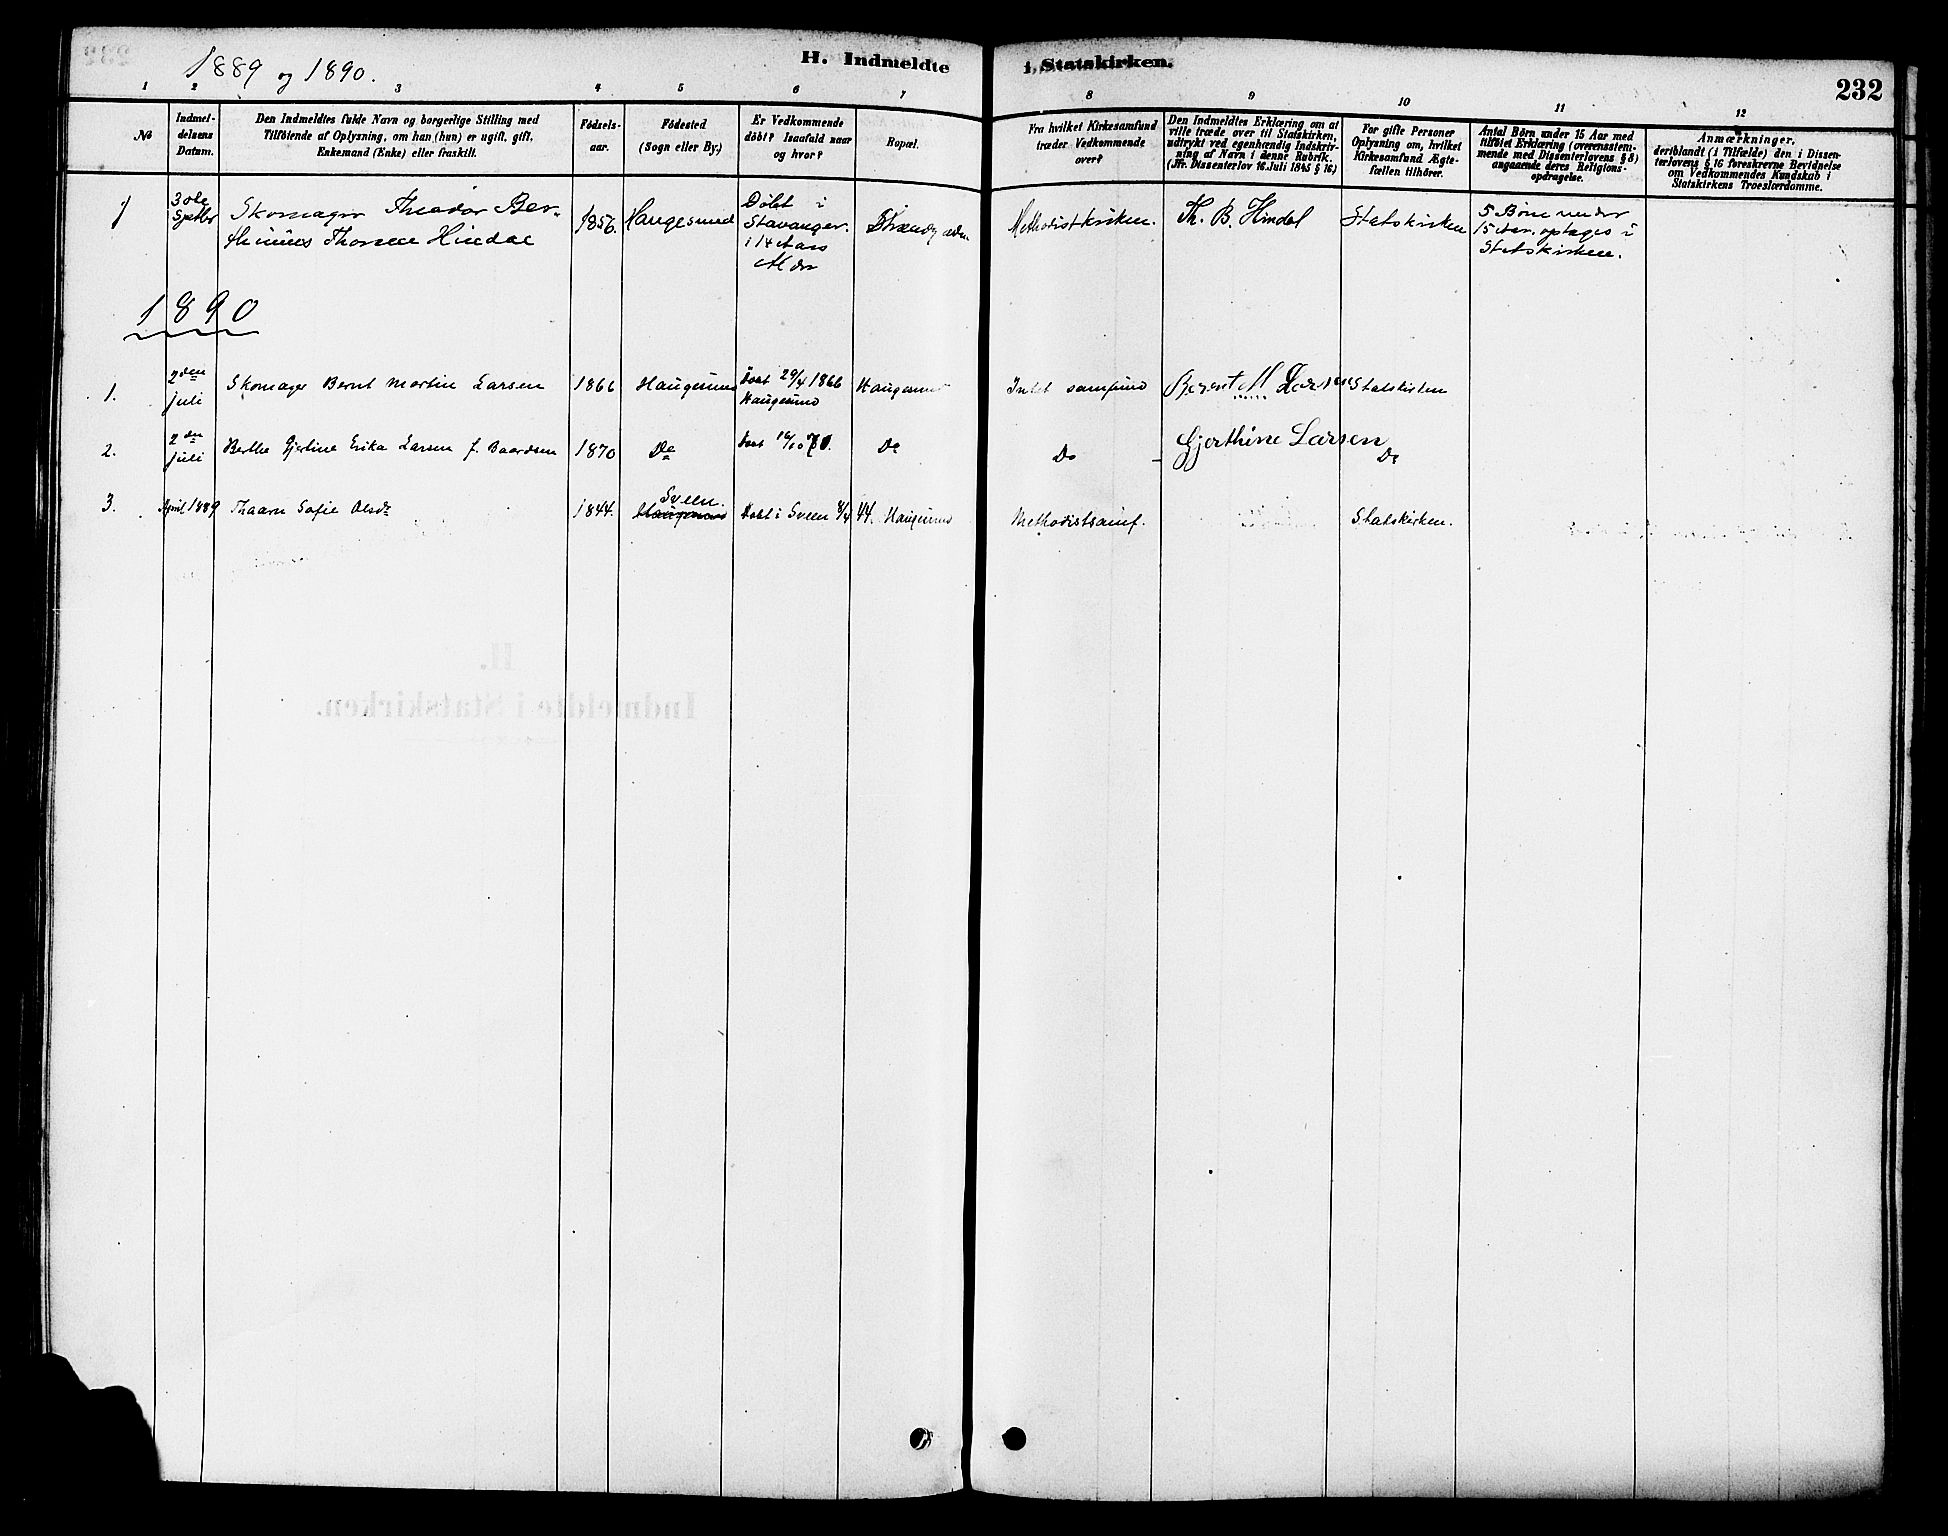 1889 og 1890.
H. Indmeldte i Statskirken.
232
1 2 3 4 5 6 7 8 9 10 11 12
No
Indmel-
delsens
Datum.
Den Indmeldtes fulde Navn og borgerlige Stilling med
Tilföiende af Oplysning, om han (hun) er ugift, gift,
Enkemand (Enke) eller fraskilt.
Födsels-
aar.
Födested
(Sogn eller By.)
Er Vedkommende
döbt? Isaafald naar
og hvor?
Bopæl.
Fra hvilket Kirkesamfund
træder Vedkommende
over?
Den Indmeldtes Erklæring om at
ville træde over til Statskirken,
udtrykt ved egenhændig Indskriv-
ning af Navn i denne Rubrik.
(Jfr. Dissenterlov 16 Juli 1845 § 16)
For gifte Personer
Oplysning om, hvilket
Kirkesamfund Ægte-
fællen tilhörer.
Antal Börn under 15 Aar med
tilföiet Erklæring (overensstem-
mende med Dissenterlovens § 8)
angaaende deres Religions-
opdragelse.
Anmærkninger,
deriblandt (i Tilfælde) den i Dissen-
terlovens § 16 foreskrevne Bevidnelse
om Vedkommendes Kundskab i
Statskirkens Troeslærdomme.
1
3die
Septbr
Skomager Theodor Ber-
thinius Thorsen Hindal
1856.
Haugesund
Döbt i
Stavanger.
i 14 Aars
Alder
Methodistkirken.
Th. B. Hindal
Statskirken
5 Börn under
15 Aar. optages i
Statskirken.
1890
1.
2den
juli
Skomager Bernt Martin Larsen
1866
Haugesund
Döbt 29/4 1866
Haugesund
Haugesund
Intet samfund
Berent M Larsen
Statskirken
2.
2den
juli
Berthe Gjertine Erika Larsen f. Baardsen
1870
Do
Do
Do
Gjerthine Larsen
Do
3.
April 1889
Thaarn Sofie Olsdr
1844.
Sveen.
Haugesund
Döbt i Sveen 8/4 44.
Haugesund
Methodistsamf.
Statskirken.
H.
Indmeldte i Statskirken.